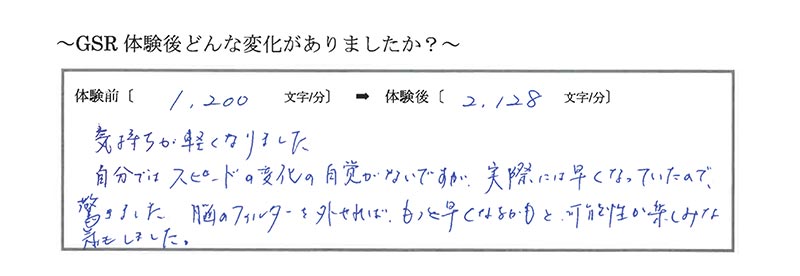 ～GSR 体験後どんな変化がありましたか？～
体験前〔 1,200 文字/分〕 ➡ 体験後〔 2,128 文字/分〕
気持ちが軽くなりました
自分ではスピードの変化の自覚がないですが、実際には早くなっていたので、
驚きました 脳のフィルターを外せれば、もっと早くなるかもと、可能性が楽しみな
気もしました。